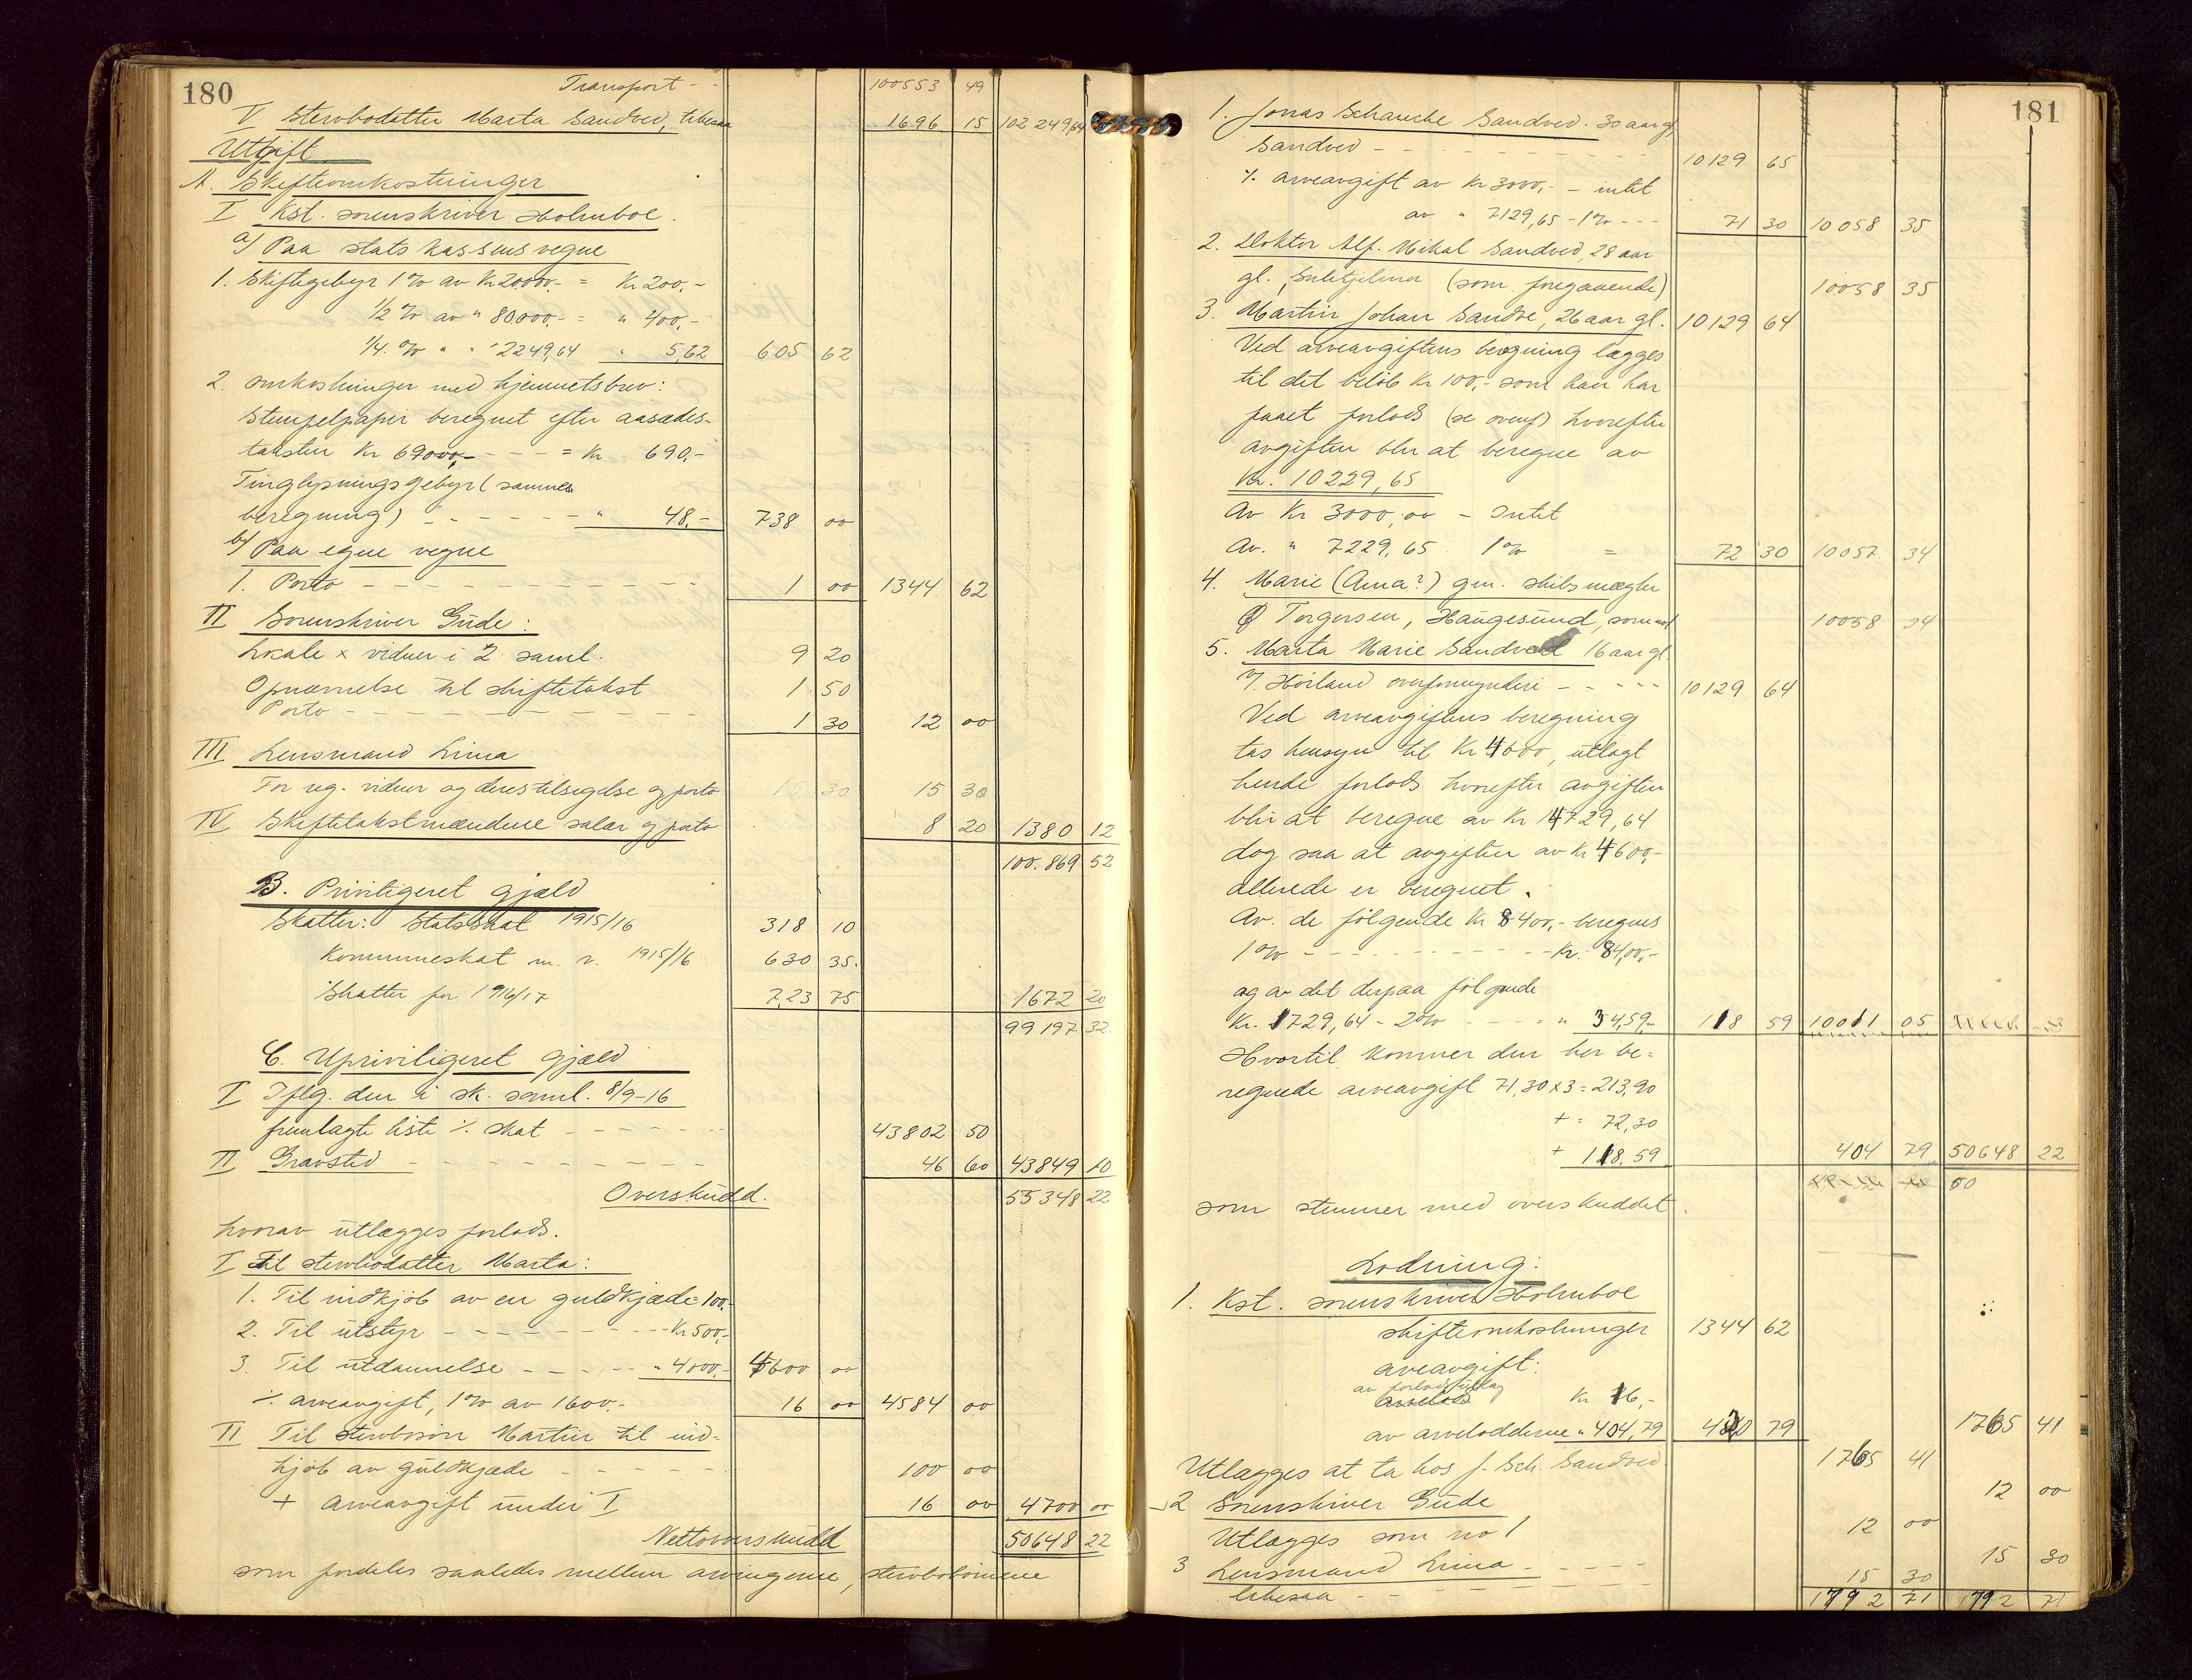 180
Transport - - 100553 49
V Stervbodatter Marta Sandved, likesaa 1696 15 102 249,64
Utgift
A. Skifteomkostninger
I Kst. sorenskriver Holmboe.
a/ Paa statskassens vegne
1. Skiftegebyr 1% av Kr 20000,- = Kr 200,-
1/2 % av " 80000,- = " 400,-
1/4 % " " 2249,64 " 5,62 605 62
2. omkostninger med hjemmetsbrev:
Stempelpapir beregnet efter aasædes-
taksten Kr 69000,- - - - = Kr 690,-
Tinglysningsgebyr (samme
beregning) - - - - - - " 48,- 738 00
b/ Paa egne vegne
1. Porto - - - - - - - - - 1 00 1344 62
II Sorenskriver Gude:
Lokale x vidner i 2 saml. 9 20
Opnævnelse til skiftetakst 1 50
Porto - - - - - - - - - 1 30 12 00
III Lensmand Lima
For reg. vidner og deres tilsigelse og porto 15 30 15 30
IV Skiftetakstmændene salær og porto 8 20 1380 12
100.869 52
B. Priviligeret gjæld
Skatter: Statsskat 1915/16 318 10
Kommuneskat m. v. 1915/16 630 35.
Skatter for 1916/17 723 75 1672 20
99197 32
C. Upriviligeret gjæld
I Iflg. den i sk. saml. 8/9-16
fremlagte liste ÷ skat - - - - - 43802 50
II Gravsted - - - - - - - - 46 60 43849 10
Overskudd. 55348 22
hvorav utlægges forlods.
I Til stervbodatter Marta:
1. Til indkjøb av en guldkjæde = 100,-
2. Til utstyr - - - - - - - - - Kr 500,-
3. Til utdannelse - - - - - " 4000,- 4600 00
÷ arveavgift, 1% av 1600,- 16 00 4584 00
II Til stervbosøn Martin til ind-
kjøb av guldkjæde - - - - - 100 00
+ Arveavgift under I 16 00 4700 00
Nettooverskudd 50648 22
som fordeles saaledes mellem arvingerne, stervbobørnene
181
1. Jonas Schanche Sandved. 30 aar gl,
Sandved - - - - - - - - - 10129 65
÷ arveavgift av Kr 3000,- - intet
av " 7129,65 - 1% - - - 71 30 10058 35
2. Doktor Alf. Mikal Sandved, 28 aar
gl., Sulitjelma (som foregaaende) 10058 35
3. Martin Johan Sandve, 26 aar gl. 10129 64
Ved arveavgiftens beregning lægges
til det beløb Kr 100,- som han har
faaet forlods (se ovenf) hvorefter
avgiften blir at beregne av
Kr. 10229,65
Av Kr 3000,00 - Intet
Av. " 7229,65 1% = 72 30 10057 34
4. Marie (Anna?) gm. skibsmægler
Torgersen, Haugesund, som no1 10058 34
5. Marta Marie Sandved 16 aar gl.
÷ Høiland overformynderi - - - - 10129 64
Ved arveavgiftens beregning
tas hensyn til Kr 4600, utlagt
hende forlods hvorefter avgiften
blir at beregne av Kr 14729,64
dog saa at avgiften av Kr 4600,-
allerede er beregnet.
Av. de følgende Kr 8400,- beregnes
1% - - - - - - - - - Kr. 84,00,-
og av det derpaa følgende
Kr. 1729,64 - 2% - - - - " 34,59,- 118 59 10011 05
Hvortil kommer den her be=
regnede arveavgift 71,30 x 3 = 213,90
+ = 72,30
+ 118,59 404 79 50648 22
som stemmer med overskuddet.
Lodning:
1. Kst. sorenskriver Holmboe
skifteomkostninger 1344 62
aveavgift:
av forlodsutlag Kr 16,-
av arvelodderne " 404,79 420 79 1765 41
Utlægges at ta hos J. Sch. Sandved. 1765 41
2 Sorenskriver Gude 12 00
Utlægges som no 1 12 00
3 Lensmand Lima - - - - - 15 30
likesaa - - - - - - - 15 30
1792 71 1792 71